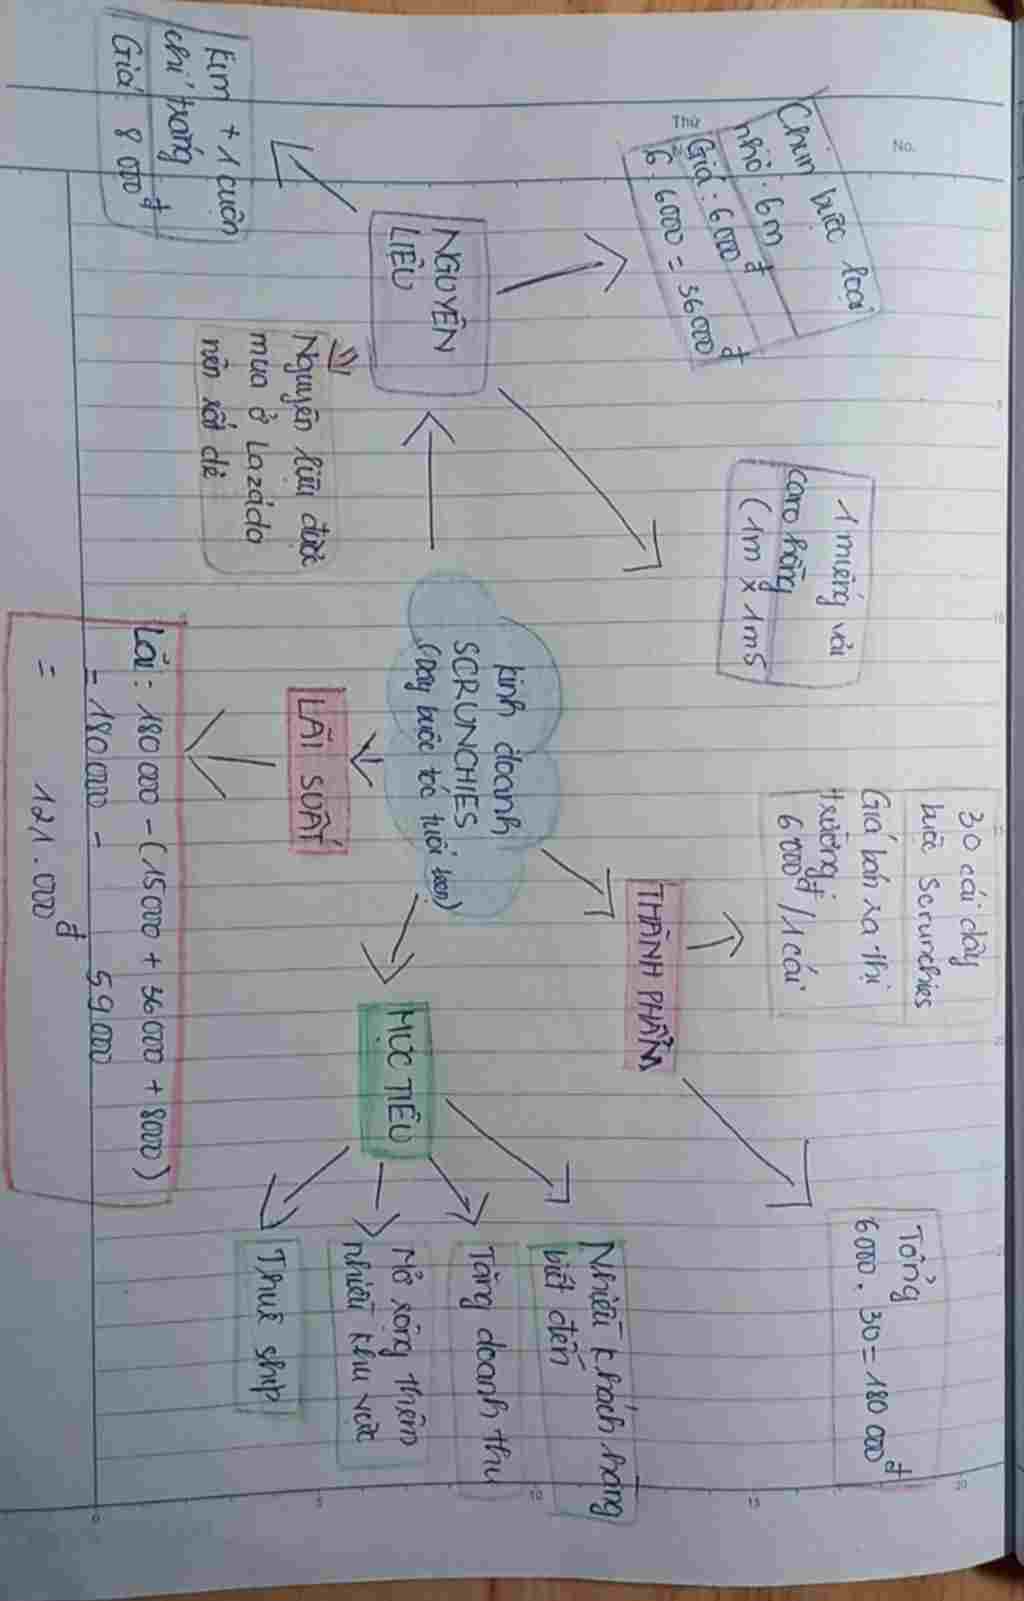 No.
Thứ
Kim + 1 cuộn
chỉ trắng
Giá: 8 000đ
NGUYÊN
LIỆU
Chun buộc loại
nhỏ: 6m
Giá: 6000đ
6 . 6000 = 36000đ
1 miếng vải
caro hồng
(1m x 1m5
Nguyên liệu được
mua ở Lazada
nên rất dẻ
kinh doanh
SCRUNCHIES
(Dây buộc tóc tuổi teen)
THÀNH PHẨM
30 cái dây
buộc Scrunchies
Giá bán ra thị
trường
6 000đ/1 cái
Tổng
6000 . 30 = 180 000đ
LÃI SUẤT
Lãi: 180 000 - (15 000 + 36 000 + 8000)
= 180 000 - 59 000
= 121.000đ
MỤC TIÊU
Nhiều khách hàng
biết đến
Tăng doanh thu
Mở rộng thêm
nhiều khu vực
Thuê ship
0
5
10
15
20